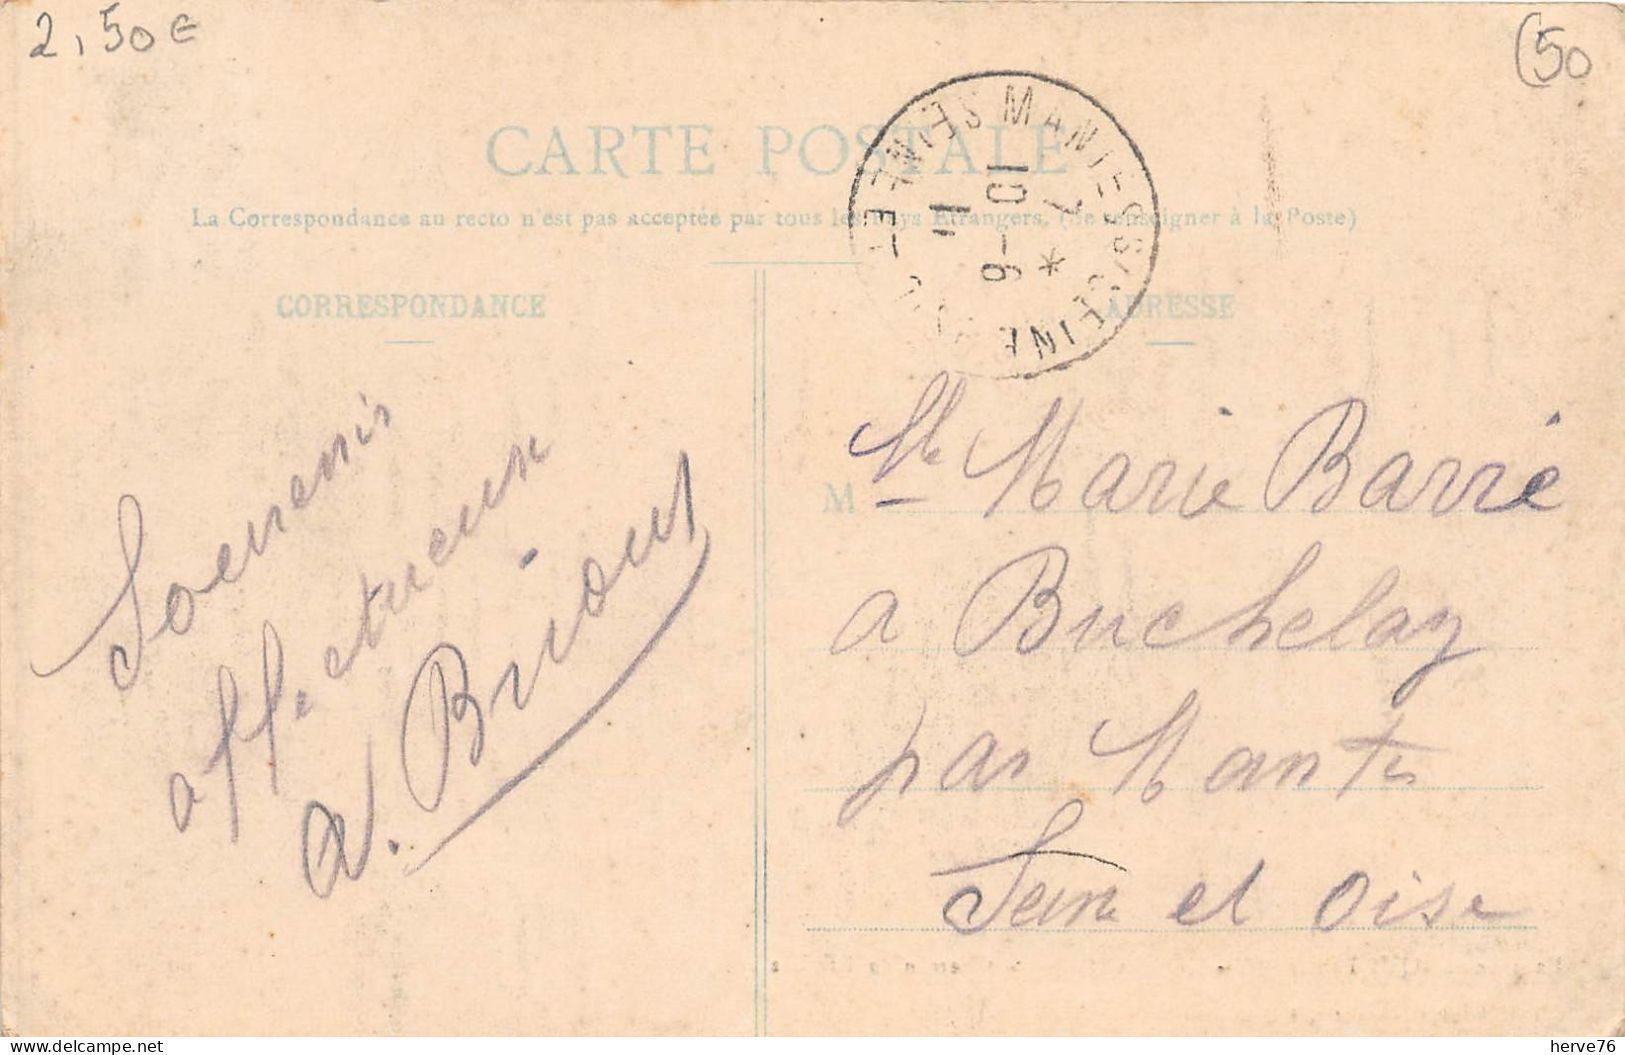 2,50€
(50
CARTE POSTALE
La Correspondance au recto n'est pas acceptée par tous les Pays Étrangers. (Se renseigner à la Poste)
MANTES S/ SEINE
SEINE-ET-
11
9-10
7
*
CORRESPONDANCE
ADRESSE
Souvenir
affectueux
A. Brioux
M lle Marie Barré
a Buchelay
par Mantes
Seine et Oise
delcampe.net
herve76